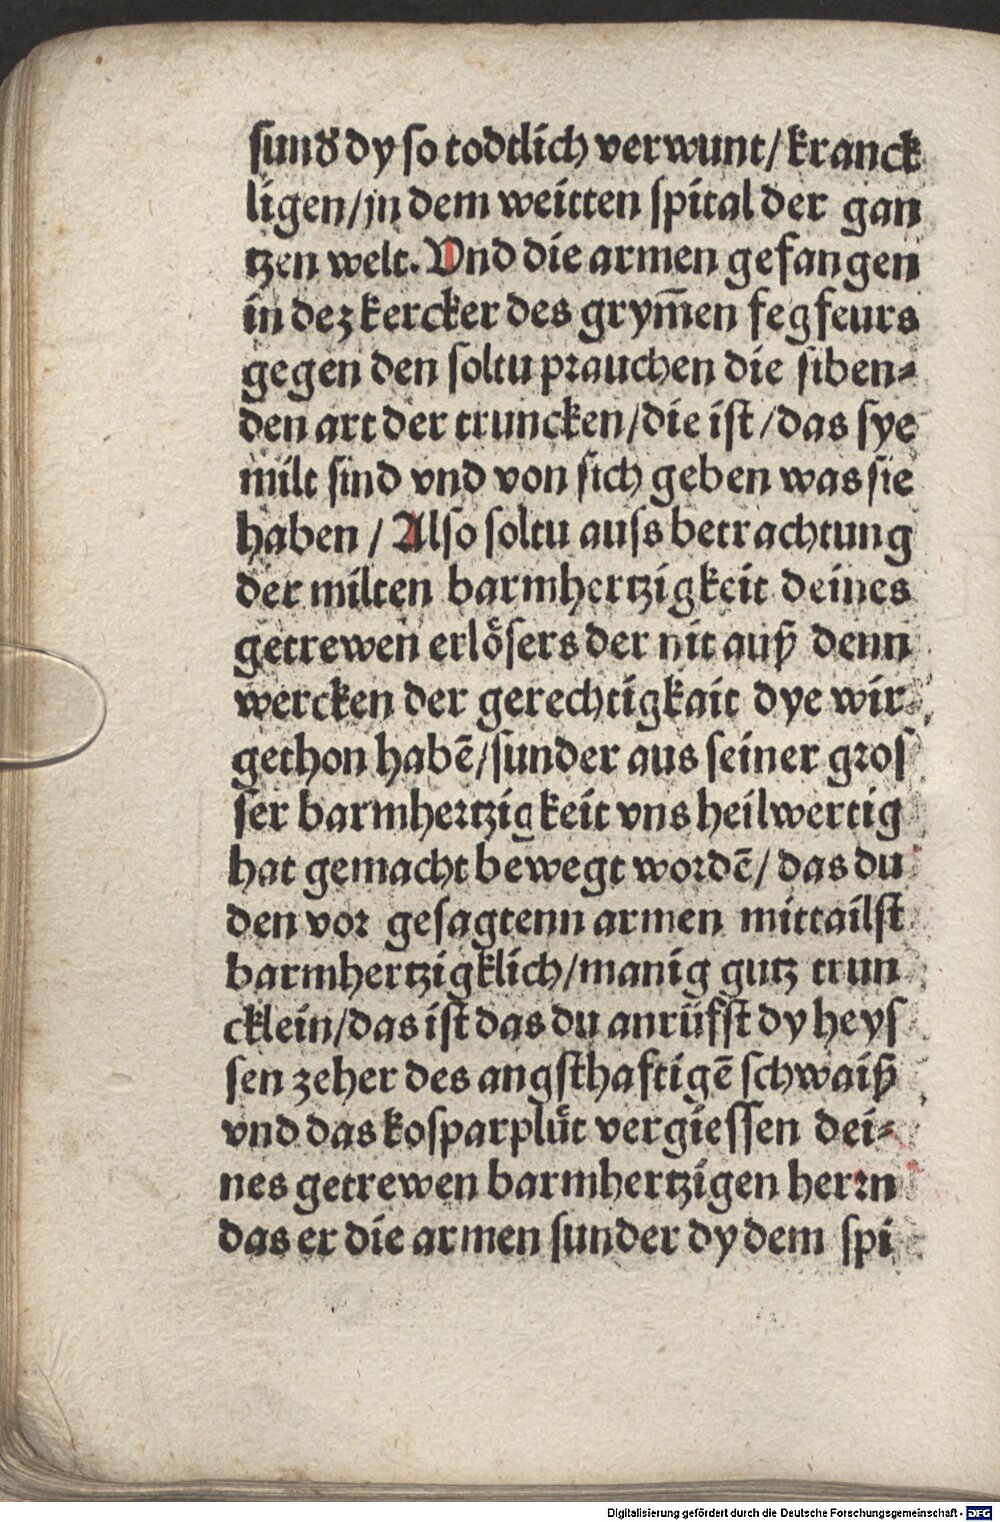 ſunꝺ̛ dy ſo todtlich verwunt/ kranck
ligen/ jn dem weitten ſpital der gan
tzen welt. Vnd die armen gefangen
in dez kercker des grym̄en fegfeurs
gegen den ſoltu prauchen die ſiben⸗
den art der truncken/ die iſt/ das ſye
milt ſind vnd von ſich geben was ſie
haben / Alſo ſoltu auſs betrachtung
der milten barmhertzigkeit deines
getrewen erlöſers der nit auß denn
wercken der gerechtigkait dye wir
gethon habē/ ſunder aus ſeiner groſ
ſer barmhertzigkeit vns heilwertig
hat gemacht bewegt wordē/ das du
den vor geſagtenn armen mittailſt
barmhertzigklich/ manig gutz trun
cklein/ das iſt das du anrüfſt dy heyſ
ſen zeher des angſthaftigē ſchwaiß
vnd das koſparplüt vergieſſen dei⸗
nes getrewen barmhertzigen herrn
das er die armen ſunder dy dem ſpi
Digitalisierung gefördert durch die Deutsche Forschungsgemeinschaft - DFG